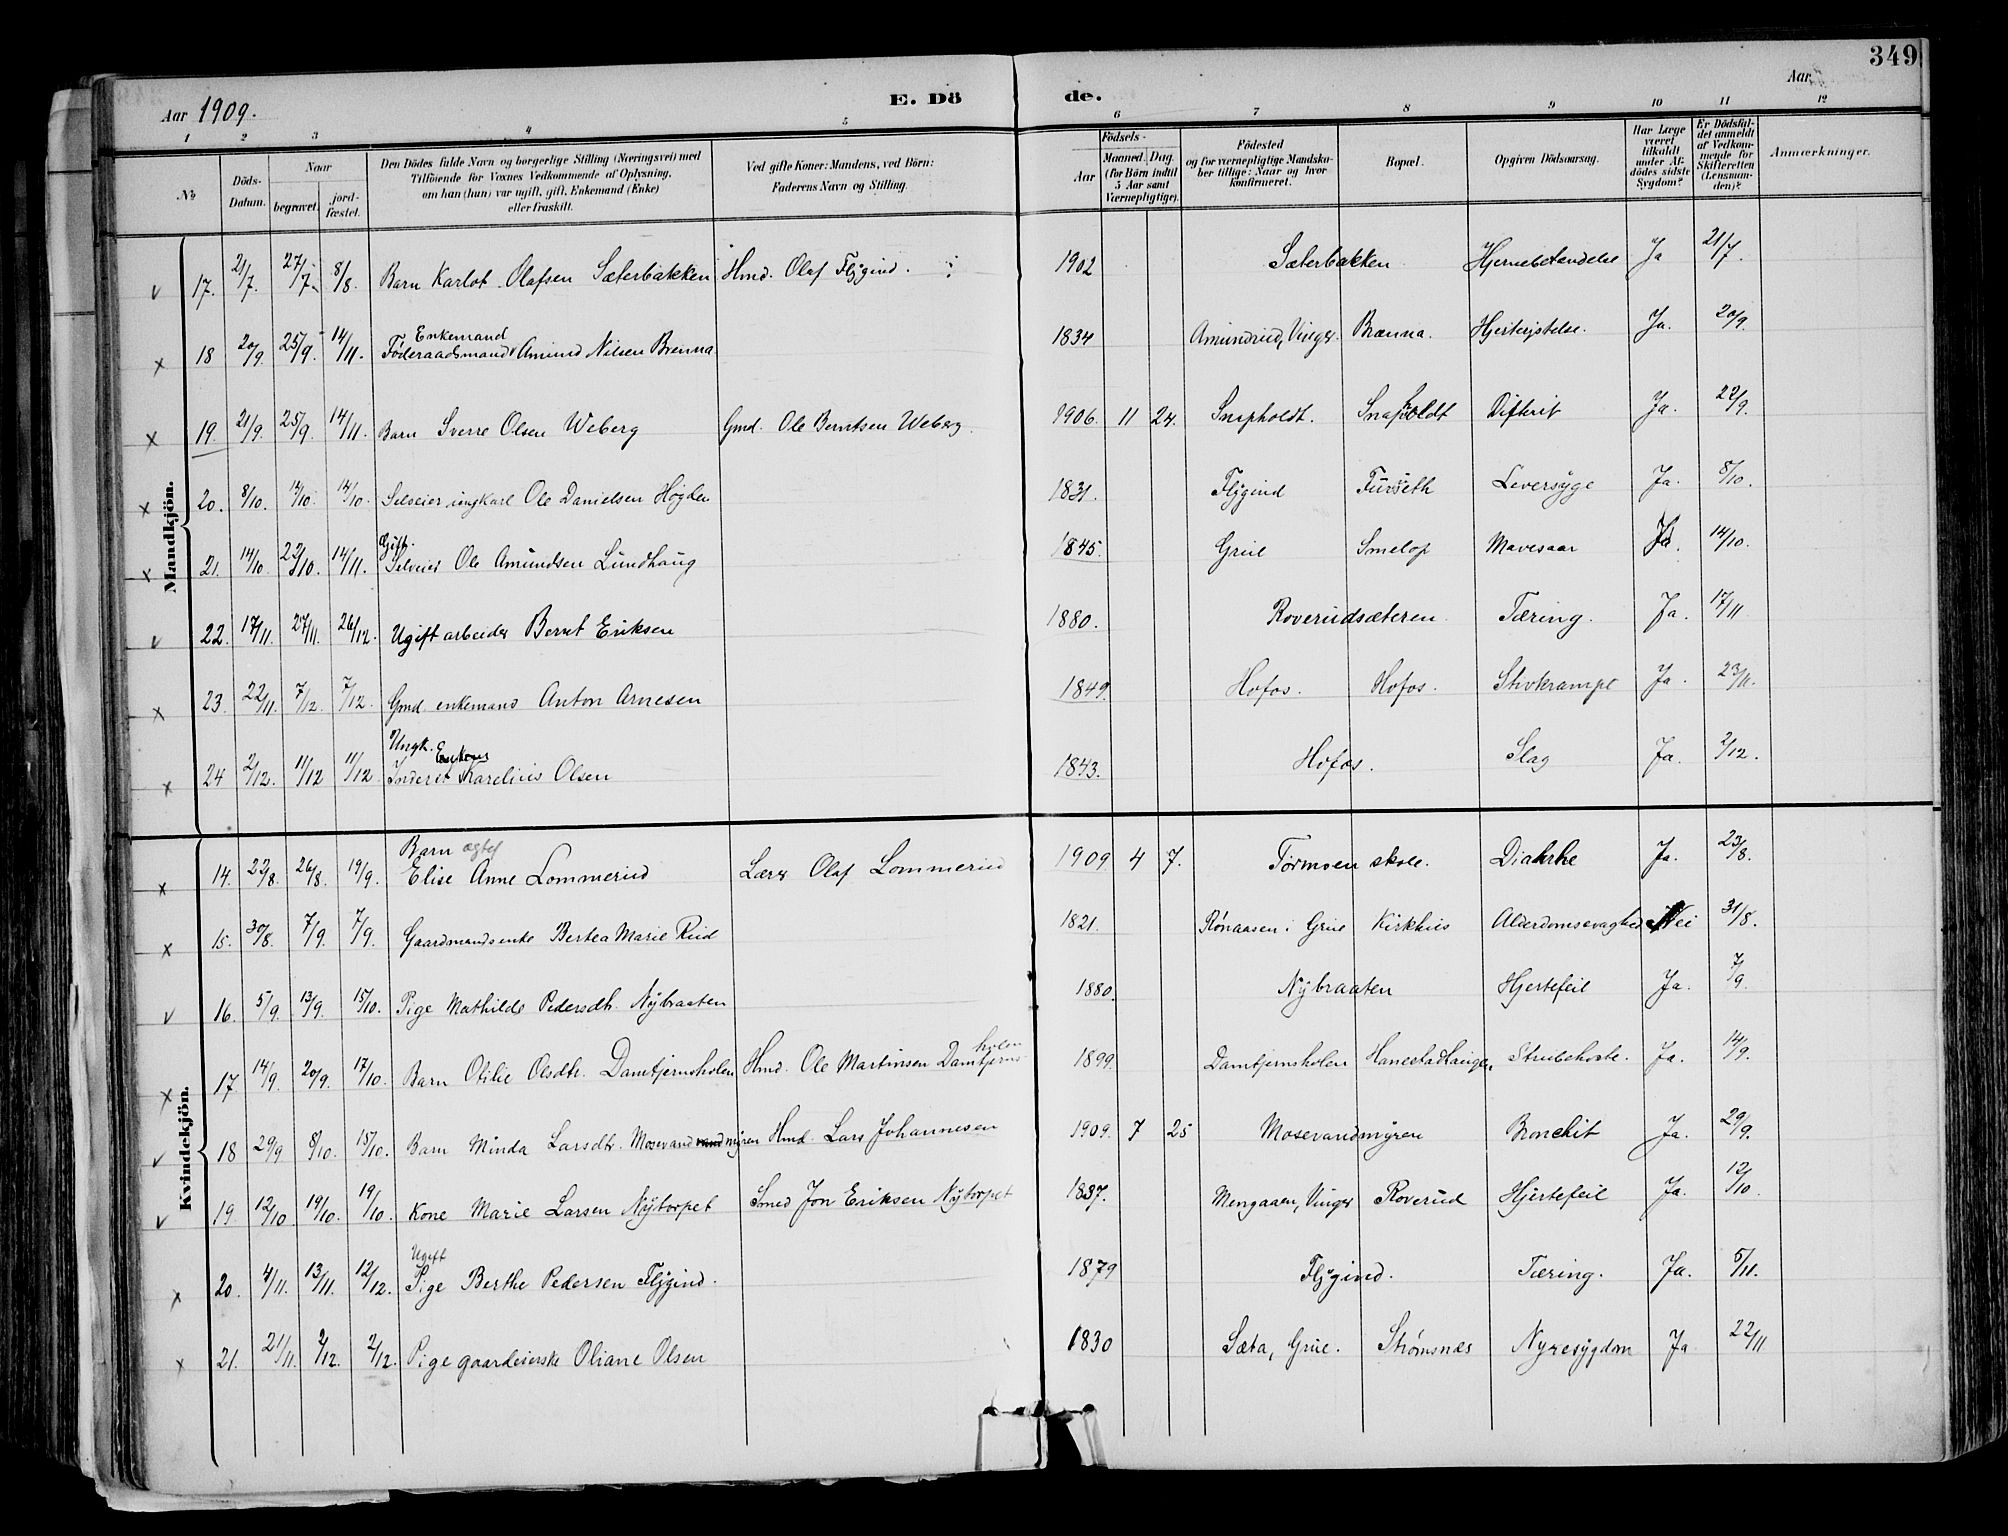 349
Aar 1909. E. Dö de. Aar
1 2 3 4 5 6 7 8 9 10 11 12
№ Döds-Datum. Naar begravet. jord-fæstet. Den Dödes fulde Navn og borgerlige Stilling (Næringsvei) med Tilföiende for Voxnes Vedkommende af Oplysning, om han (hun) var ugift, gift, Enkemand (Enke) eller fraskilt. Ved gifte Koner: Mandens, ved Börn: Faderens Navn og Stilling. Födsels- Aar Maaned. Dag. (for Börn indtil 5 Aar samt Værnepligtige). Födested og for værnepligtige Mandskaber tillige: Naar og hvor konfirmeret. Bopæl. Opgiven Dödsaarsag. Har Læge været tilkaldt under Afdödes sidste Sygdom? Er Dödsfaldet anmeldt af Vedkommende for Skifteretten (Lensmanden)? Anmærkninger.
Mandkjön.
v 17. 21/7. 27/7. 8/8. Barn Karlot Olafsen Sæterbakken Hmd. Olaf Flygind. 1902 Sæterbakken Hjernebetændelse Ja 21/7.
x 18 20/9. 25/9. 14/11. Enkemand Föderaadsmand Amund Nilsen Brenna 1834 Amundrud, Vinger. Brænna. Hjertelystelse. Ja. 20/9.
x 19. 21/9. 25/9. 14/11. Barn Sverre Olsen Weberg Gmd. Ole Berntsen Weberg. 1906 11 24. Snapholdt. Snapholdt Difterit Ja. 22/9.
x 20. 8/10. 14/10. 14/10. Selveier ungkarl Ole Danielsen Høgden 1831. Flygind Furuseth Leversyge Ja. 8/10.
x 21. 14/10. 23/10. 14/11. Gift. Selveier Ole Amundsen Lundhaug 1845. Grue Smelop Mavesaar Ja. 14/10.
v 22. 17/11. 27/11. 26/12. Ugift arbeider Bernt Eriksen 1880. Roverudsæteren. Tæring. Ja. 17/11
x 23. 22/11. 7/12. 7/12. Gmd. enkemand Anton Arnesen 1849. Hofos. Hofos. Stivkrampe Ja. 23/11.
x 24 2/12. 11/12 11/12. Ungk. Inderst Karelius Olsen 1843. Hofos. Slag Ja. 2/12.
Kvindekjön.
x 14. 22/8. 26/8. 19/9. Barn ægtef Elise Anne Lommerud Lærer Olaf Lommerud 1909 4 7. Tørmoen skole. Diahrhe Ja. 23/8.
x 15. 30/8. 7/9. 7/9. Gaardmandsenke Bertea Marie Rud 1821. Rønaasen i Grue Kirkhus Alderdomssvaghed Nei 31/8.
v 16. 5/9. 13/9. 15/10. Pige Mathilde Pedersdtr. Nybraaten 1880. Nybraaten Hjertefeil Ja. 7/9.
x 17 14/9. 20/9. 17/10. Barn Otilie Olsdtr. Damtjernsholen Hmd. Ole Martinsen Damtjernsholen 1899. Damtjernsholen Hanestadhaugen Strubehoste. Ja. 14/9.
v 18 29/9 8/10. 15/10. Barn Minda Larsdtr. Mosevandmyren Hmd. Lars Johannesen 1909. 7 25 Mosevandmyren Bronchit Ja. 29/9.
v 19 12/10 19/10. 19/10. Kone Marie Larsen Nytorpet Smed Jon Eriksen Nytorpet 1837. Mengaaen, Vinger Roverud Hjertefeil Ja. 12/10.
x 20. 4/11. 13/11. 12/12. Ugift Pige Berthe Pedersen Flygind. 1879 Flygind. Tæring. Ja. 5/11.
x 21. 21/11. 2/12. 2/12. Pige gaardeierske Oliane Olsen 1830 Sæta, Grue. Strømsnæs Nyresygdom Ja 22/11